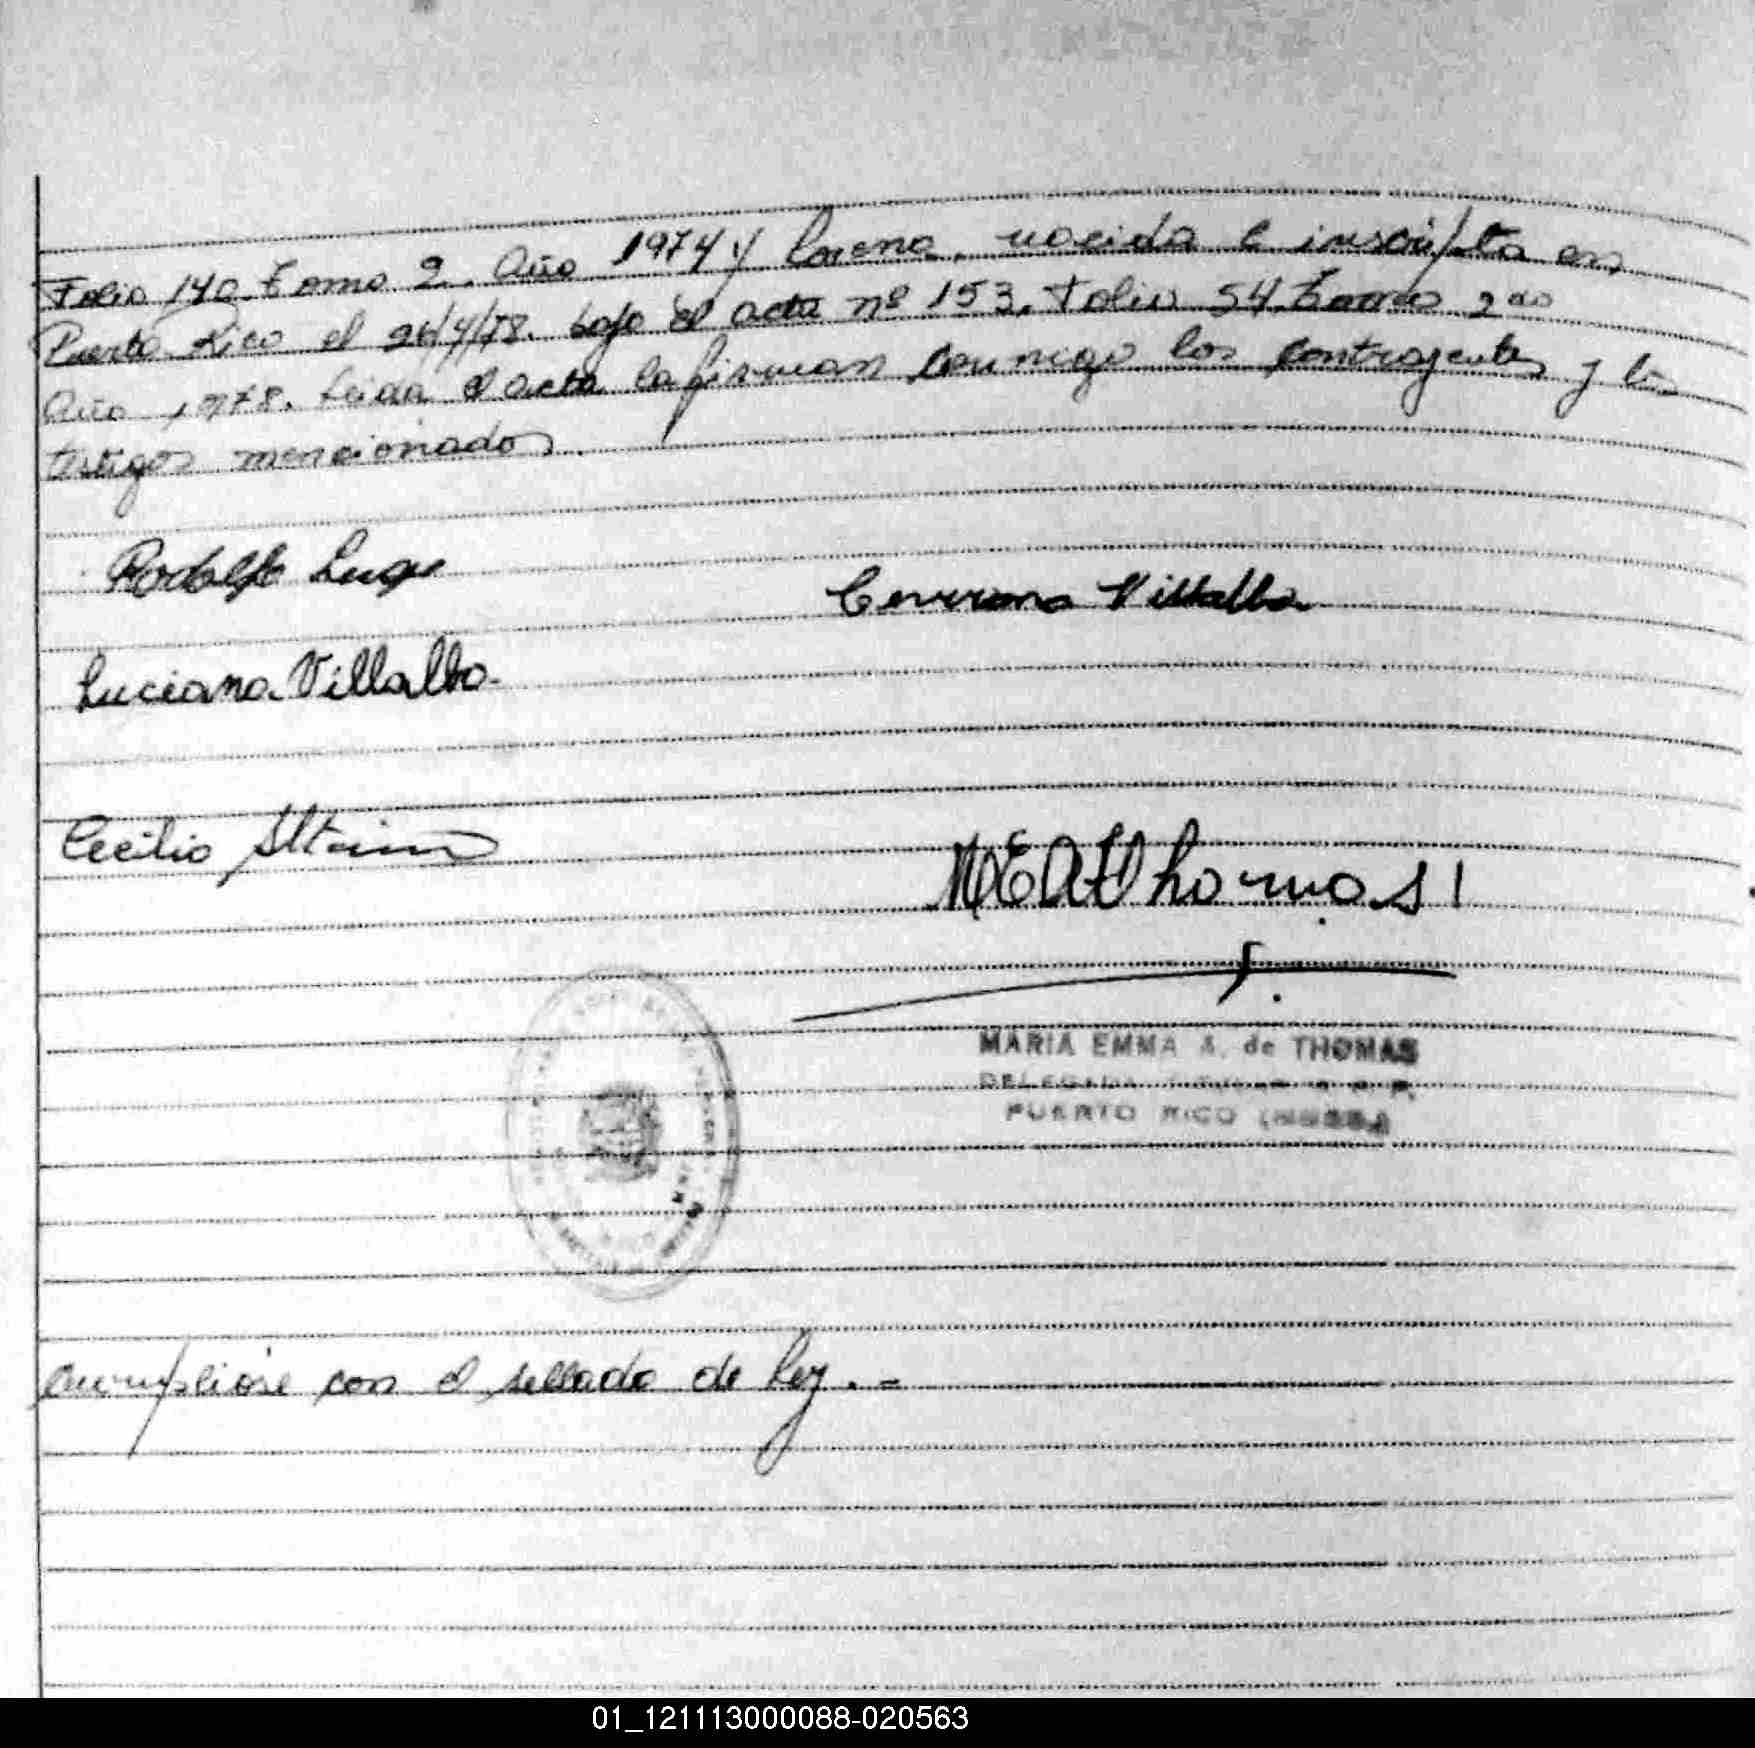 Folio 140 Tomo 2. Año 1974 y Lorena, nacida e inscripta en
Puerto Rico el 24/4/78. bajo el acta nº 153. Folio 54 Tomo 2do
Año 1978. Leida el acta la firman conmigo los contrayentes y los
testigos mencionados.
Rodolfo
Villalba
Luciano Villalba.
Cecilio
MEAThomas
MARIA EMMA A. de THOMAS
DELEGADA
PUERTO RICO
Cumplióse con el sellado de Ley. =
01_121113000088-020563